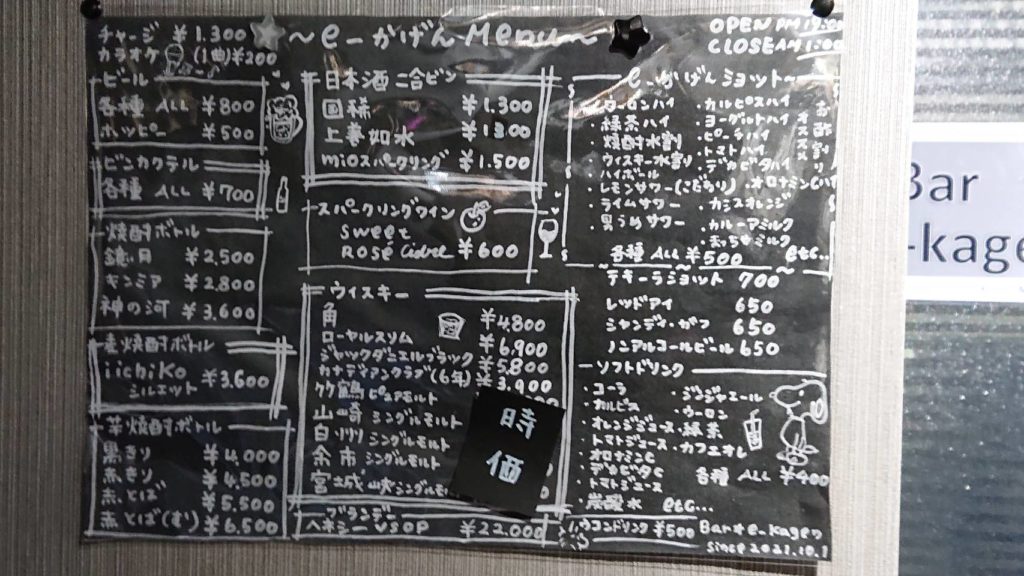 チャージ ¥1.300
カラオケ (1曲)¥200
ビール
各種 ALL ¥800
ホッピー ¥500
ビンカクテル
各種 ALL ¥700
焼酎ボトル
鏡月 ¥2,500
キンミヤ ¥2.800
神の河 ¥3.600
麦焼酎ボトル
iichiko
シルエット ¥3.600
芋焼酎ボトル
黒きり ¥4,000
赤きり ¥4,500
赤とば ¥5,500
赤とば(む) ¥6,500
〜e-かげんMenu〜
日本酒 二合ビン
国稀 ¥1.300
上妻如水 ¥1300
mioスパークリング ¥1.500
スパークリングワイン
sweet
ROSé Cidre ¥600
ウイスキー
角 ¥4,800
ローヤルスリム ¥6,900
ジャックダニエルブラック ¥5,800
カナディアンクラブ(6年) ¥3,900
竹鶴ピュアモルト
山崎 シングルモルト
白州 シングルモルト
余市 シングルモルト
宮城峡シングルモル
時価
ブランデー
ヘネシーVSOP ¥22.000
OPEN PM 19:00
CLOSE AM 1:00
e-かげんショット〜
・ウーロンハイ ・カルピスハイ
・緑茶ハイ ・ヨーグルトハイ
・焼酎水割 ・ピーチハイ
・ウィスキー水割り ・トマトハイ
ハイボール ・デカビタハイ
・レモンサワー(こだわり) ・オロナミンCハイ
・ライムサワー ・カシスオレンジ
・男うめサワー ・カルーアミルク
・まっちゃミルク
各種 ALL ¥500 etc...
テキーラショット 700
レッドアイ 650
シャンディ・ガフ 650
ノンアルコールビール 650
ソフトドリンク
・コーラ ・ジンジャエール
・カルピス ・ウーロン
・オレンジジュース ・緑茶
・トマトジュース ・カフェオレ
・オロナミンC
・デカビタC 各種 ALL ¥400
・トマトジュース
・炭酸水 etc...
ウコンドリンク ¥500
Bar★e_kagen
since 2021.10.1
Bar
-kage